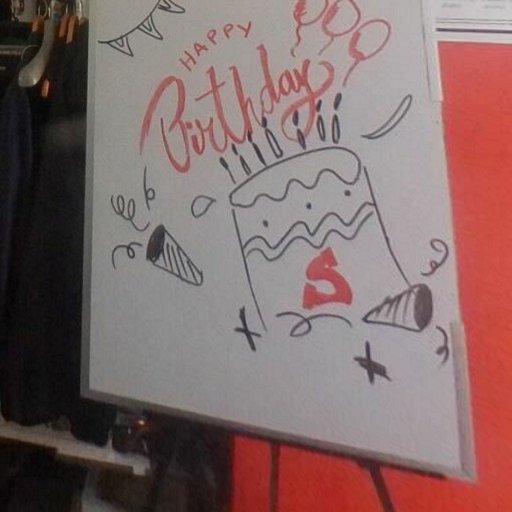 HAPPY
Birthday
S